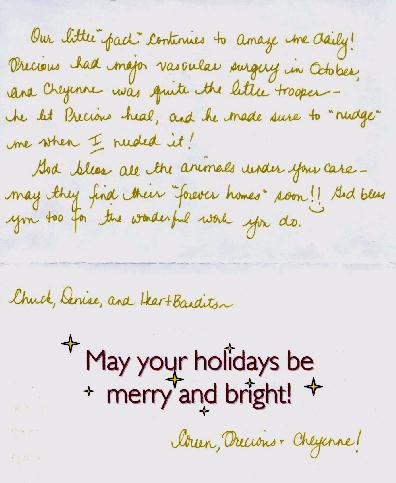 Our little "pack" continues to amaze me daily!
Precious had major vascular surgery in October,
and Cheyenne was quite the little trooper—
he let Precious heal, and he made sure to "nudge"
me when I needed it!
God bless all the animals under your care—
may they find their "forever homes" soon!! God bless
you too for the wonderful work you do.
Chuck, Denise, and HeartBandits
May your holidays be
merry and bright!
Precious + Cheyenne!